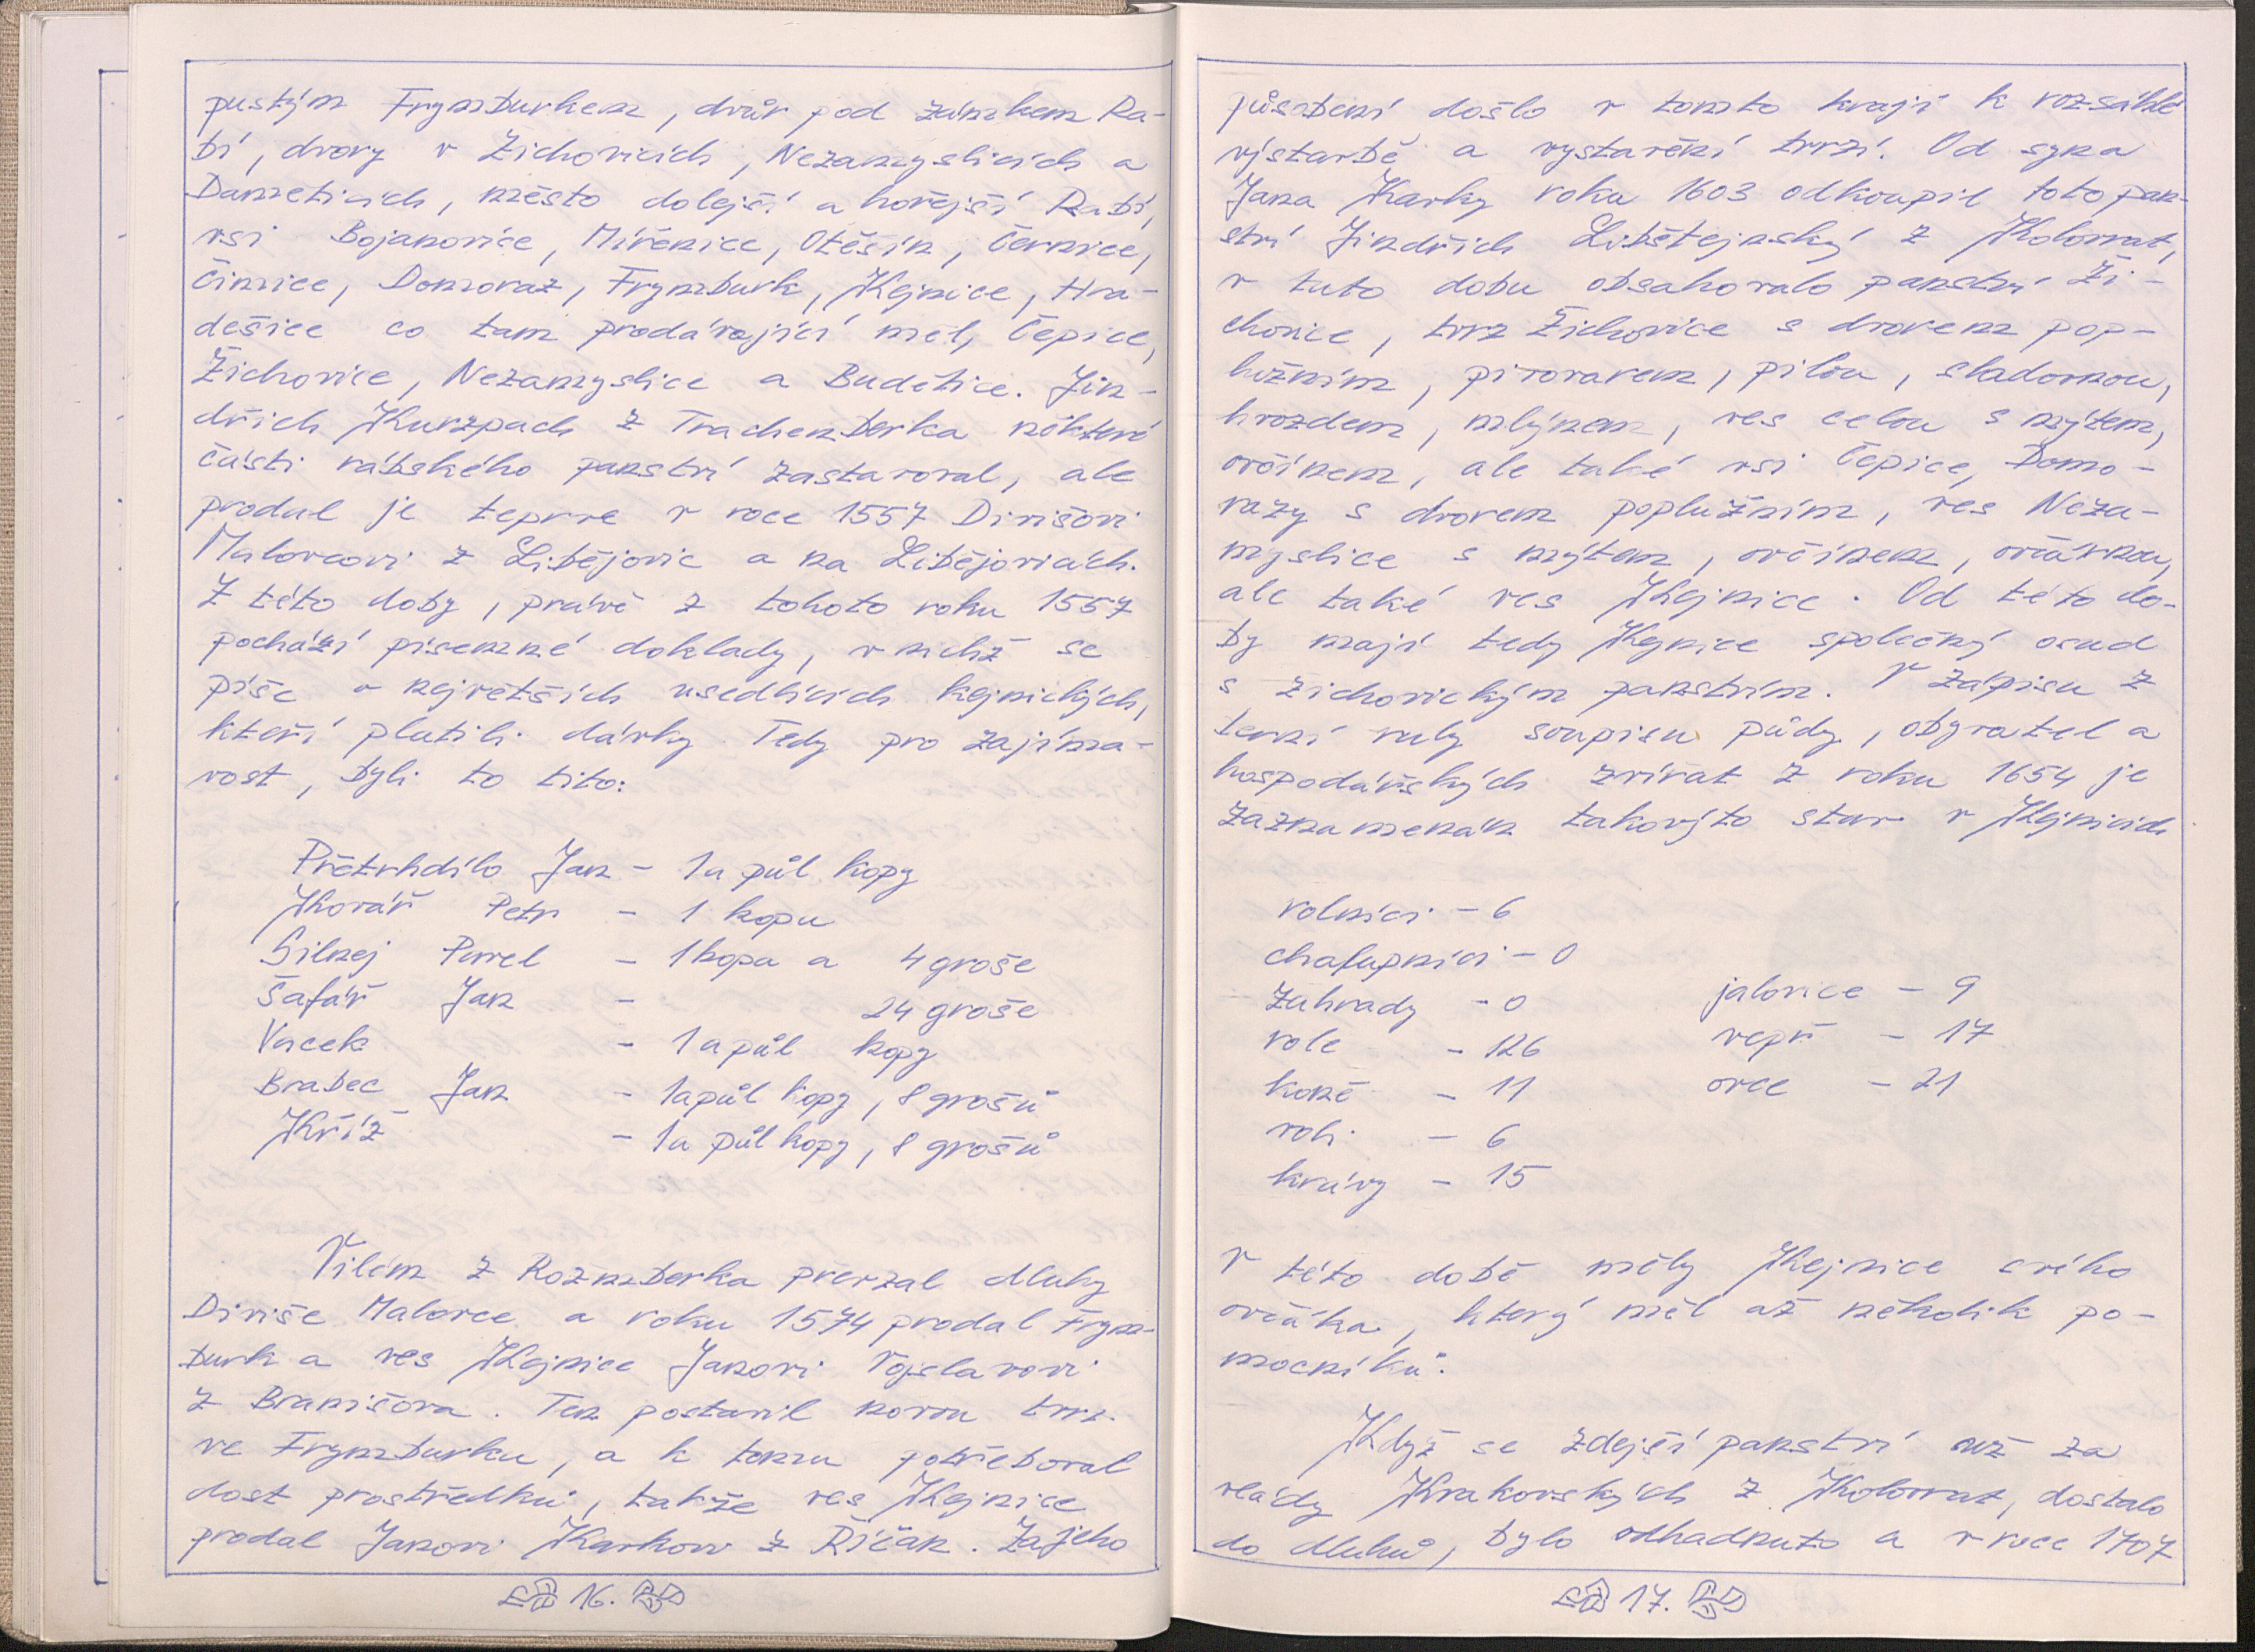 pustým Frymburkem, dvůr pod zámkem Ra-
bí, dvory v Žichovicích, Nezamyslicích a
Daměticích, město dolejší a hořejší Rabí,
vsi Bojanovice, Míčenice, Otěšín, Černice,
Čimice, Domoraz, Frymburk, Kejnice, Hra-
dešice co tam prodávající měl, Čepice,
Žichovice, Nezamyslice a Budětice. Jin-
dřich Kurzpach z Trachenberka některé
části rábského panství zastavoval, ale
prodal je teprve v roce 1557 Divišovi
Malovcovi z Libějovic a na Libějovicách.
Z této doby, právě z tohoto roku 1557
pochází písemné doklady, v nichž se
píše o největších usedlících kejnických,
kteří platili dávky. Tedy pro zajíma-
vost, byli to tito:
Přetrhdílo Jan - 1 a půl kopy
Kovář Petr - 1 kopu
Silnej Pavel - 1 kopa a 4 groše
Šafář Jan - 24 groše
Vacek - 1 a půl kopy
Brabec Jan - 1 a půl kopy, 8 grošů
Kříž - 1 a půl kopy, 8 grošů
Vilém z Rožmberka převzal dluhy
Diviše Malovce a roku 1574 prodal Frym-
burk a ves Kejnice Janovi Vojslavovi
z Branišova. Ten postavil novou tvrz
ve Frymburku, a k tomu potřeboval
dost prostředků, takže ves Kejnice
prodal Janovi Karkovi z Říčan. Za jeho
16.
působení došlo v tomto kraji k rozsáhlé
výstavbě a vystavění tvrzí. Od syna
Jana Karky roku 1603 odkoupil toto pan-
ství Jindřich Libštejnský z Kolovrat,
v tuto dobu obsahovalo panství Ži-
chovice, tvrz Žichovice s dvorem pop-
lužním, pivovarem, pilou, sladovnou,
hvozdem, mlýnem, ves celou s mýtem,
ovčínem, ale také vsi Čepice, Domo-
razy s dvorem poplužním, ves Neza-
myslice s mýtem, ovčínem, ovčárnou,
ale také ves Kejnice. Od této do-
by mají tedy Kejnice společný osud
s žichovickým panstvím. V zápisu z
berní ruly soupisu půdy, obyvatel a
hospodářských zvířat z roku 1654 je
zaznamenán takovýto stav v Kejnicích
rolníci - 6
chalupníci - 0
zahrady - 0
role - 126
koně - 11
voli - 6
krávy - 15
jalovice - 9
vepři - 17
ovce - 21
V této době měly Kejnice svého
ovčáka, který měl až několik po-
mocníků.
Když se zdejší panství už za
vlády Krakovských z Kolovrat, dostalo
do dluhů, bylo odhadnuto a v roce 1707
17.